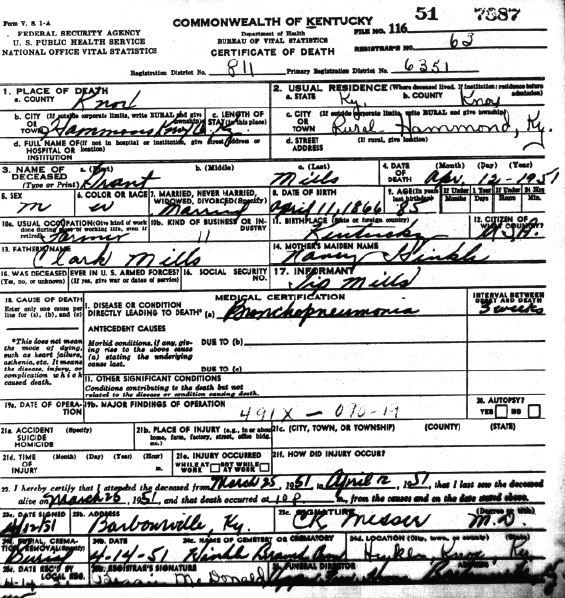 Form V. S. 1-A
COMMONWEALTH OF KENTUCKY
FILE NO. 116 51 7887
FEDERAL SECURITY AGENCY
U. S. PUBLIC HEALTH SERVICE
NATIONAL OFFICE VITAL STATISTICS
Department of Health
BUREAU OF VITAL STATISTICS
CERTIFICATE OF DEATH
REGISTRAR'S NO. 63
Registration District No. 811 Primary Registration District No. 6351
1. PLACE OF DEATH
a. COUNTY Knox
2. USUAL RESIDENCE (Where deceased lived. If institution: residence before admission)
a. STATE Ky. b. COUNTY Knox
b. CITY (If outside corporate limits, write RURAL and give township) OR TOWN Hammons Ky.
c. LENGTH OF STAY (in this place)
c. CITY (If outside corporate limits, write RURAL and give township) OR TOWN Rural - Hammond, Ky.
d. FULL NAME OF (If not in hospital or institution, give street address or location) HOSPITAL OR INSTITUTION
d. STREET ADDRESS (If rural, give location)
3. NAME OF DECEASED (Type or Print)
a. (First) Grant b. (Middle) c. (Last) Mills
4. DATE OF DEATH (Month) (Day) (Year) Apr. 12-1951
5. SEX M
6. COLOR OR RACE W
7. MARRIED, NEVER MARRIED, WIDOWED, DIVORCED (Specify) Married
8. DATE OF BIRTH April 11, 1866
9. AGE (In years last birthday) 85 If Under 1 Year If Under 24 Hrs
10a. USUAL OCCUPATION (Give kind of work done during most of working life, even if retired) Farmer
10b. KIND OF BUSINESS OR INDUSTRY 11
11. BIRTHPLACE (State or foreign country) Kentucky
12. CITIZEN OF WHAT COUNTRY? USA.
13. FATHER'S NAME Clark Mills
14. MOTHER'S MAIDEN NAME Nancy Hinkle
15. WAS DECEASED EVER IN U. S. ARMED FORCES? (Yes, no, or unknown) (If yes, give war or dates of service)
16. SOCIAL SECURITY NO.
17. INFORMANT Sip Mills
18. CAUSE OF DEATH
Enter only one cause per line for (a), (b), and (c)
*This does not mean the mode of dying, such as heart failure, asthenia, etc. It means the disease, injury, or complication which caused death.
MEDICAL CERTIFICATION
INTERVAL BETWEEN ONSET AND DEATH
I. DISEASE OR CONDITION DIRECTLY LEADING TO DEATH* (a) Bronchopneumonia 3 weeks
ANTECEDENT CAUSES
Morbid conditions, if any, giving rise to the above cause (a) stating the underlying cause last.
DUE TO (b)
DUE TO (c)
II. OTHER SIGNIFICANT CONDITIONS
Conditions contributing to the death but not related to the disease or condition causing death.
19a. DATE OF OPERATION
19b. MAJOR FINDINGS OF OPERATION
491X
20. AUTOPSY? YES NO
21a. ACCIDENT SUICIDE HOMICIDE (Specify)
21b. PLACE OF INJURY (e.g., in or about home, farm, factory, street, office bldg. etc.)
21c. (CITY, TOWN, OR TOWNSHIP) (COUNTY) (STATE)
21d. TIME OF INJURY (Month) (Day) (Year) (Hour) m.
21e. INJURY OCCURRED WHILE AT WORK NOT WHILE AT WORK
21f. HOW DID INJURY OCCUR?
22. I hereby certify that I attended the deceased from March 25, 1951 to April 12, 1951, that I last saw the deceased
alive on March 25, 1951, and that death occurred at 10 P. m., from the causes and on the date stated above.
23a. DATE SIGNED 4/12/51
23b. ADDRESS Barbourville, Ky.
23c. SIGNATURE CR Messer M.D. (Degree or title)
24a. BURIAL, CREMATION, REMOVAL (Specify) Burial
24b. DATE 4-14-51
24c. NAME OF CEMETERY OR CREMATORY Hinkle Branch Cem
24d. LOCATION (City, town, or county) (State) Hinkle Knox, Ky
25a. REC'D BY LOCAL REG. 4-14-51
25b. REGISTRAR'S SIGNATURE Bessie McDonald
25. FUNERAL DIRECTOR ADDRESS